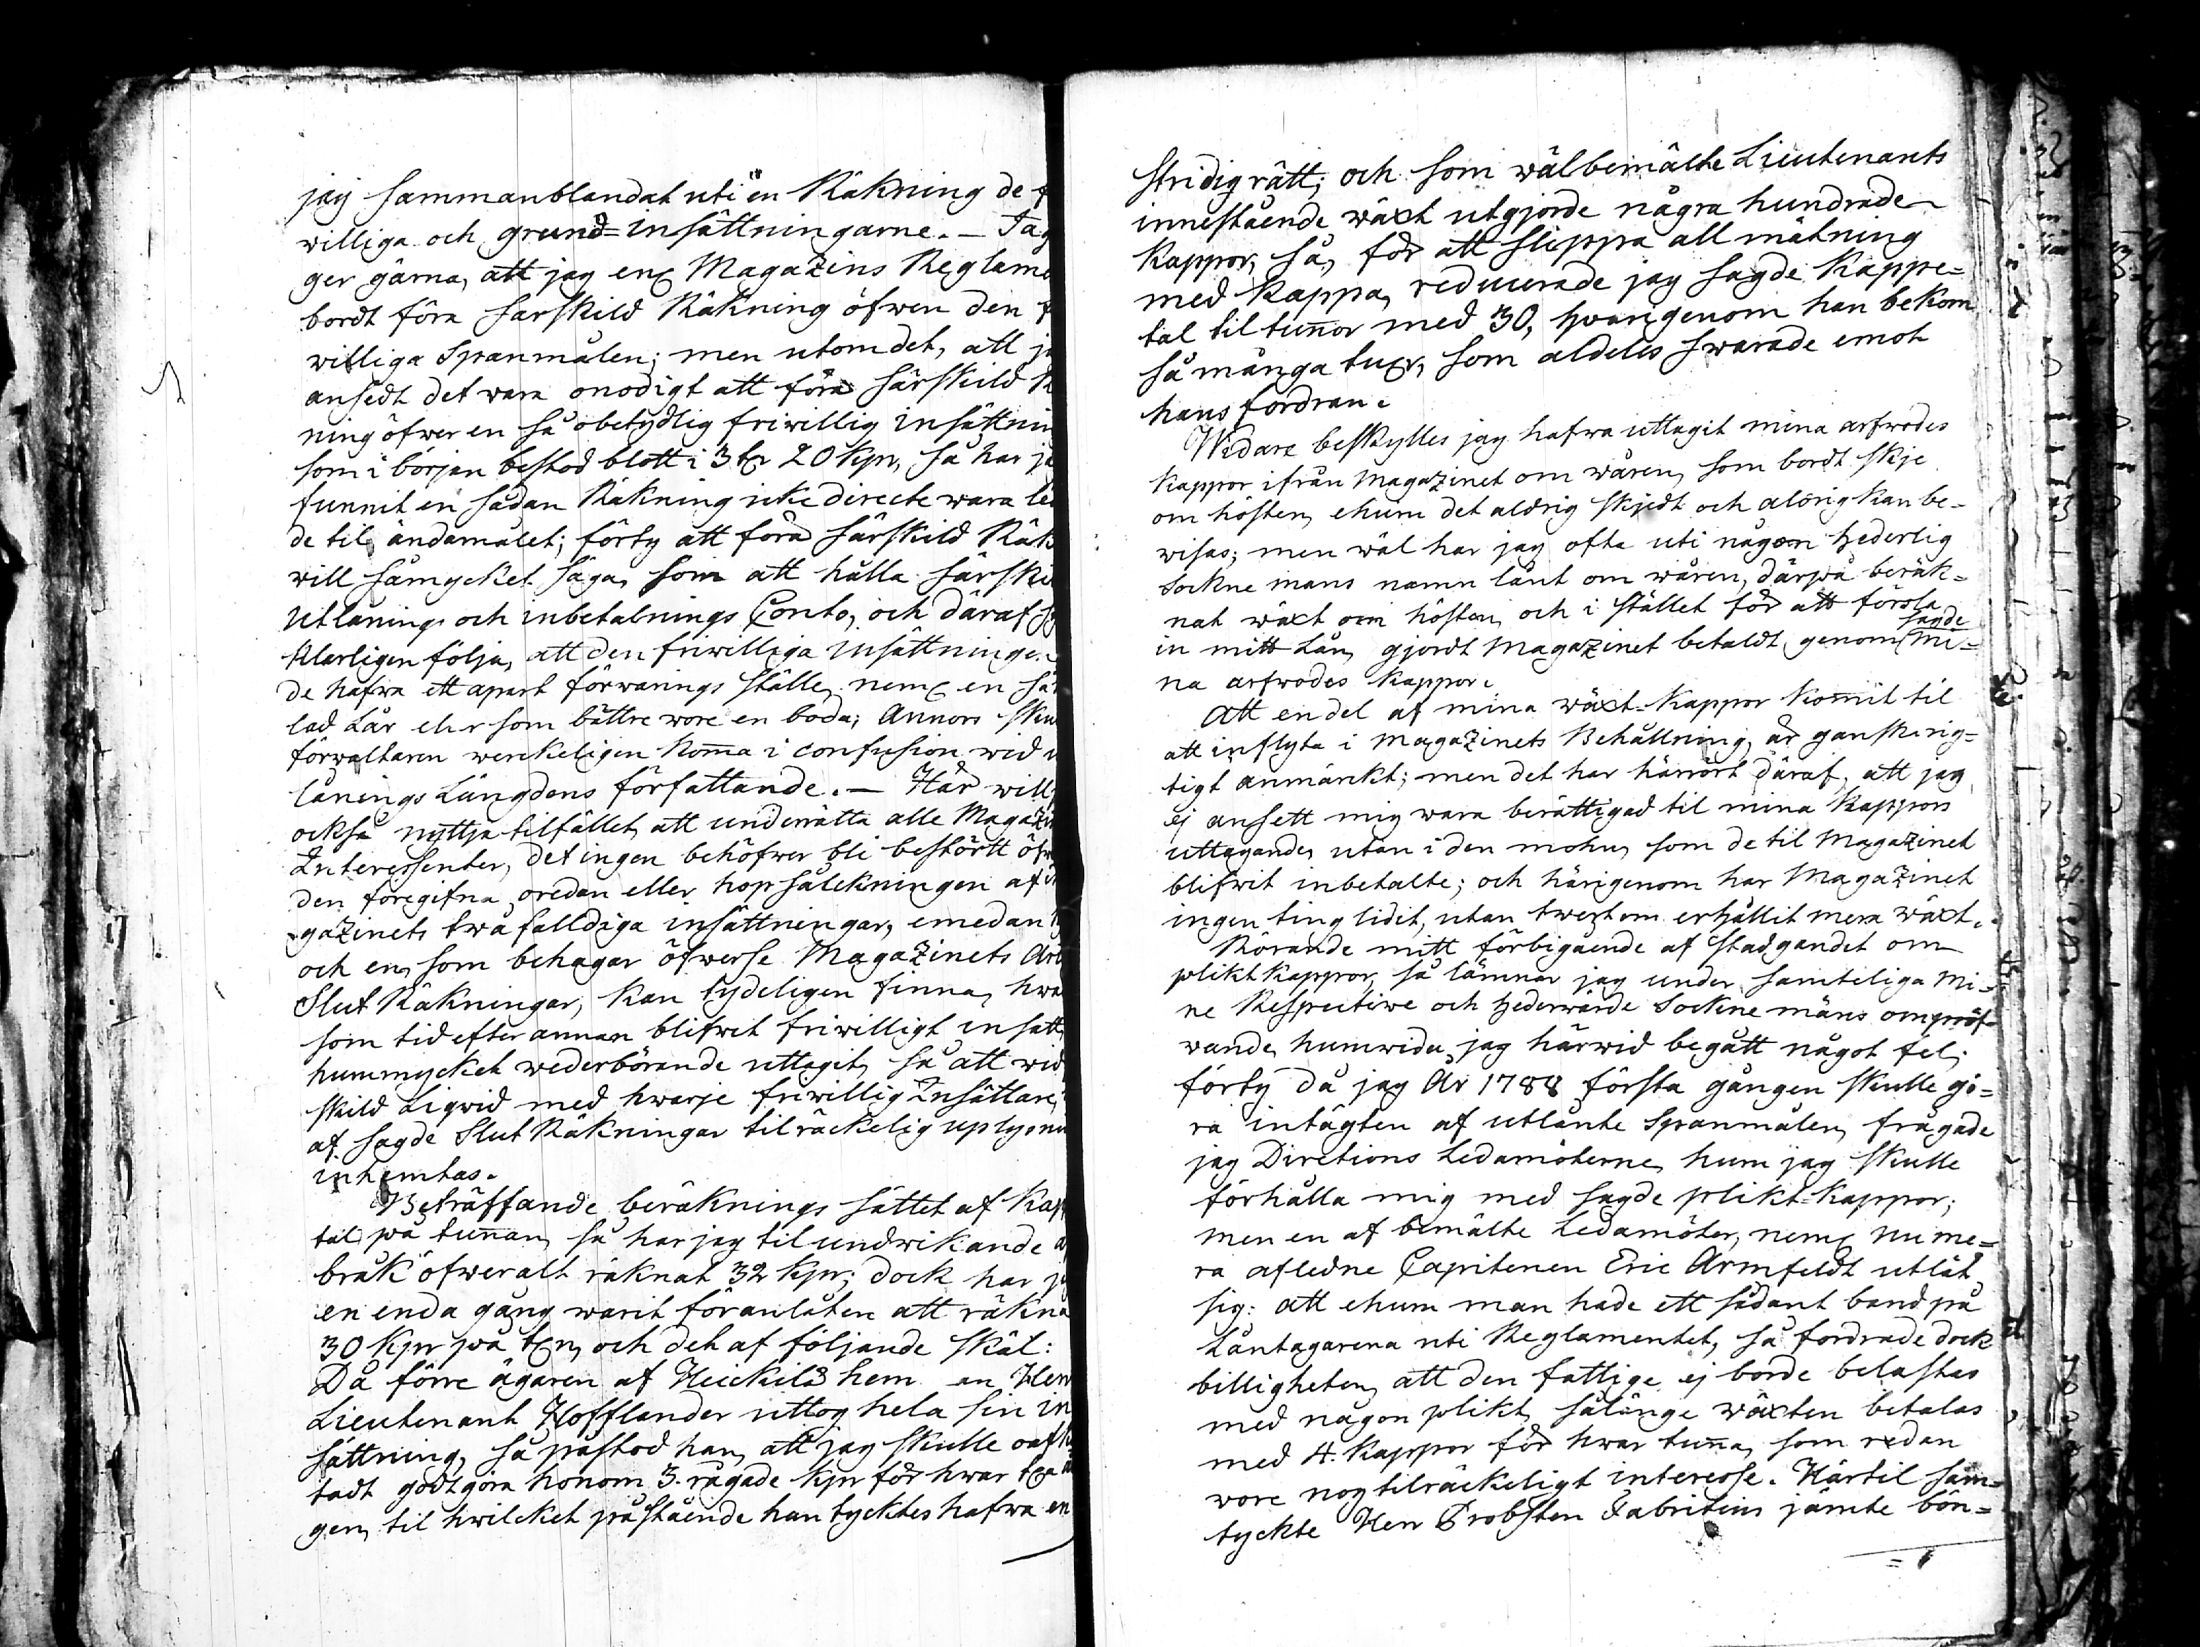 jag sammanblandat uti en Räkning de f
williga och grund=insättningarne. – Jag
ger gärna, att jag enl Magazins Reglame
bordt föra särskild Räkning öfwer den f
williga Spanmålen; men utom det, att ja
ansedt det wara onödigt att föra särskild R
ning öfwer en så obetydlig friwillig insättnin
som i början bestod blott i 3 tr 20 kpr, så har ja
funnit en sådan Räkning icke directe wara le
de til ändamålet; förty att föra särskild Räk
will såmycket säga, som att hålla särski
Utlånings och inbetalnings Conto, och däraf
klarligen följa, att den friwilliga insättninge
de hafwa ett apart förwarings ställe, neml en
lad Lår eller som bättre wore en boda; Annors sku
förwaltaren werckeligen kom̅a i confusion wid
lånings Längdens författande. – Här will
också nyttja tilfället, att underrätta alle Magazin
Interessenter, det ingen behöfwer bli bestört öfw
den föregifna oredan eller hopsäleckningen af
gazinets twåfalldiga insättningar, emedan
och en, som behagar öfwerse Magazinets
Slut Räkningar, kan tydeligen finna, hwa
som tid efter annan blifwit friwilligt insatt,
hurumycket wederbörande uttagit, så att wid
skild Liqvid med hwarje friwillig Insättare,
af sagde Slut Räkningar tilräckelig uplysni
inhemtas.
Beträffande beräknings sättet af Kap
tal på tun̅an, så har jag til undwikande a
bråk öfweralt räknat 32 kpr; dock har ja
en enda gång warit föranlåten att räkna
30 kpr på tn, och det af följande skäl:
Då förre ägaren af Heickilä hem an Herr
Lieutenant Hofflander uttog hela sin in
sättning, så påstod han, att jag skulle
tadt godtgöra honom 3. rågade kpr för hwar
gen, til hwilcket påstående han tycktes hafwa en
stridig rätt; och som wälbemälte Lieutenants
innestående wäxt utgjorde några hundrade
Kappor, så, för att slippa all mätning
med kappa, reducerade jag sagde Kappe=
tal til tun̅or med 30, hwarigenom han bekom
så många tnr, som aldeles swarade emot
hans fordran.
Widare beskylles jag hafwa uttagit mina arfwodes
kappor ifrån Magazinet om wåren, som bordt skje
om hösten, ehuru det aldrig skjedt och aldrig kan be=
wisas; men wäl har jag ofta uti någon hederlig
Sockne mans namn lånt om wåren, därpå beräk=
nat wäxt om hösten, och i stället för att försla
sagde
in mitt Lån, gjordt Magazinet betaldt, genom mi=
na arfwodes kappor.
Att en del af mina wäxt-kappor kom̅it til
att inflyta i Magazinets Behållning, är ganska rig=
tigt anmärkt; men det har härrört däraf, att jag
ej ansett mig wara berättigad til mina kappors
uttagande, utan i den mohn, som de til Magazinet
blifwit inbetalte; och härigenom har Magazinet
ingen ting lidit, utan twertom erhållit mera wäxt.
Rörande mitt förbigående af stadgandet om
pliktkappor, så lämnar jag under samteliga Mi=
ne Respective och hederwärde Sockne mäns ompröf=
wande, huruwida jag härwid begått något fel;
förty då jag År 1788 första gången skulle gö=
ra intägten af utlånte Spanmålen, frågade
jag Directions Ledamöterne, huru jag skulle
förhålla mig med sagde plikt=kappor;
men en af bemälte Ledamöter, neml nu me=
ra afledne Capitenen Eric Armfeldt utlät
sig: att ehuru man hade ett sådant band på
Låntagarena uti Reglamentet, så fordrade dock
billigheten, att den fattige ej borde belastas
med någon plikt, sålänge wäxten betalas
med 4. kappor för hwar tun̅a, som redan
wore nog tilräckeligt interesse. Härtil sam=
tyckte Herr Probsten Fabritius jämte bön=